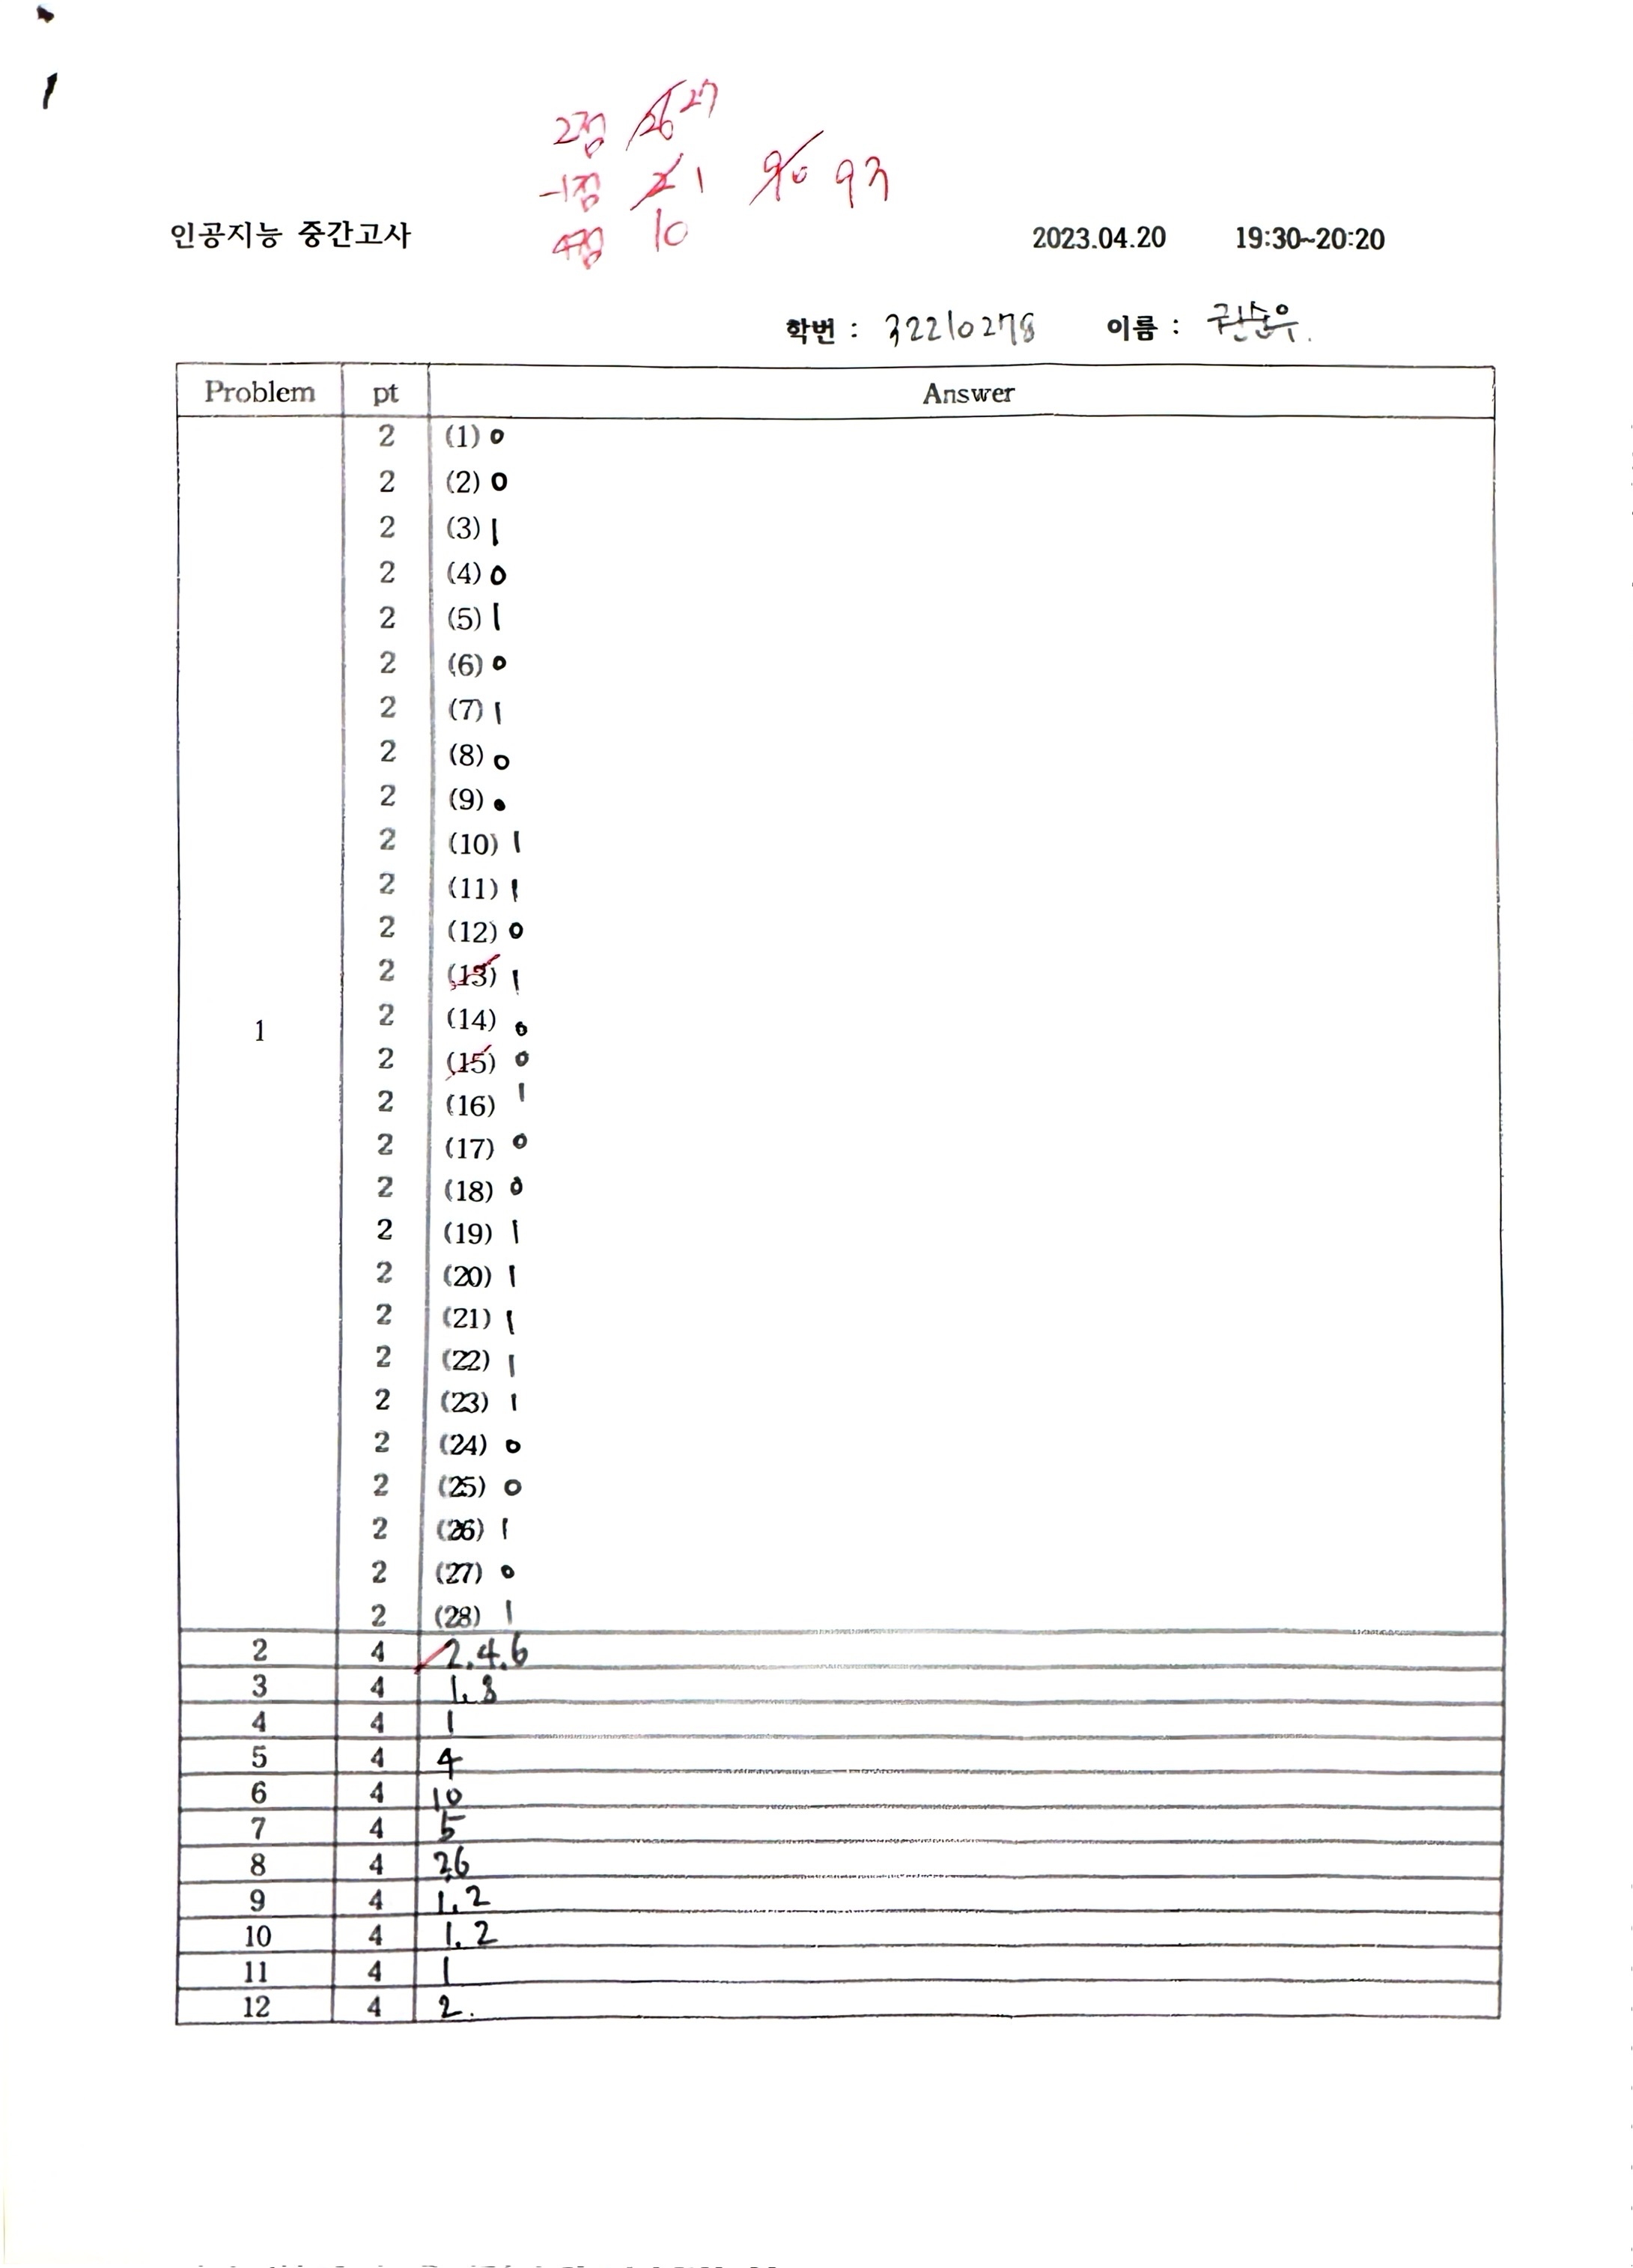 2점 26 27
-1점 2 1 90 93
4점 10
인공지능 중간고사 2023.04.20 19:30~20:20
학번 : 32210278 이름 : 권순우.
Problem pt Answer
2 (1) 0
2 (2) 0
2 (3) 1
2 (4) 0
2 (5) 1
2 (6) 0
2 (7) 1
2 (8) 0
2 (9) 0
2 (10) 1
2 (11) 1
2 (12) 0
2 (13) 1
2 (14) 0
1
2 (15) 0
2 (16) 1
2 (17) 0
2 (18) 0
2 (19) 1
2 (20) 1
2 (21) 1
2 (22) 1
2 (23) 1
2 (24) 0
2 (25) 0
2 (26) 1
2 (27) 0
2 (28) 1
2 4 2.4.6
3 4 1.3
4 4 1
5 4 4
6 4 10
7 4 5
8 4 26
9 4 1.2
10 4 1.2
11 4 1
12 4 2.